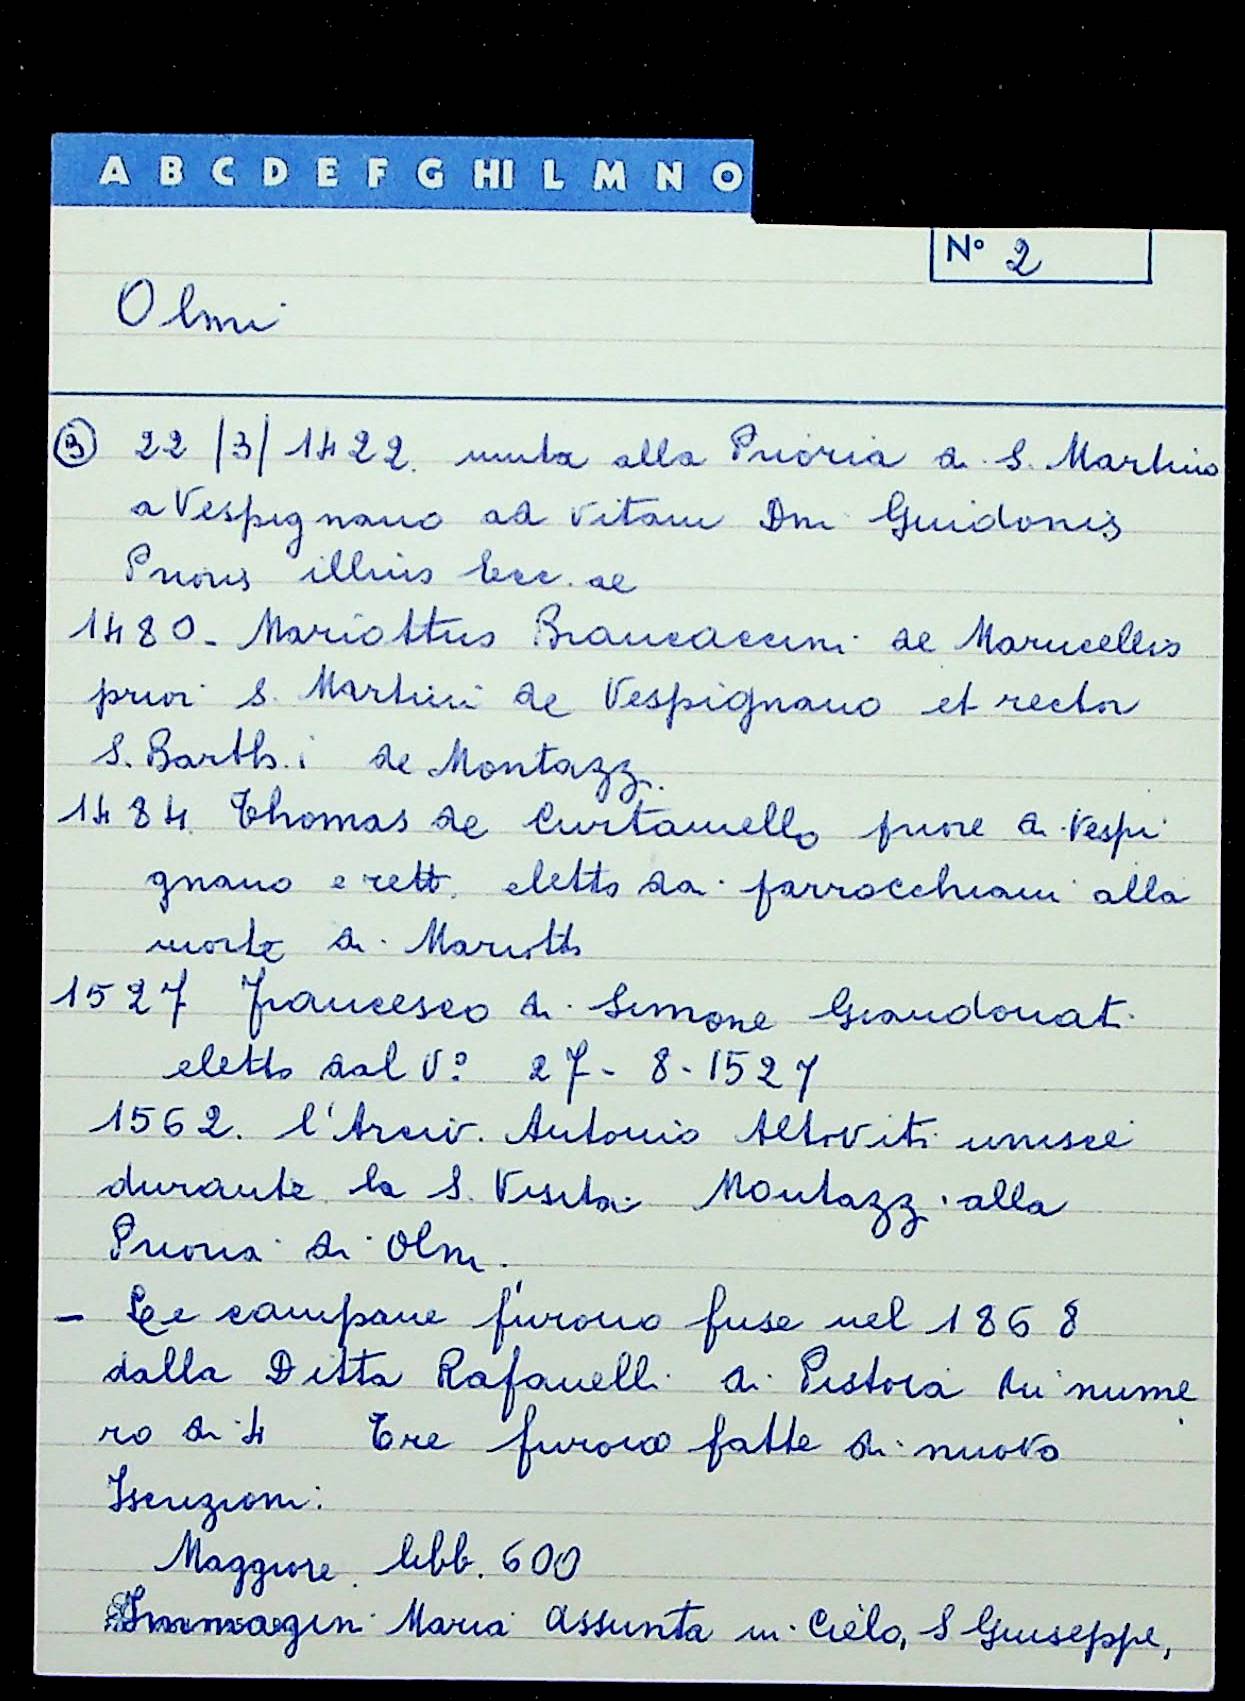 A B C D E F G HI L M N O
N° 2
Olmi
③ 22/3/1422. unita alla Prioria di S. Martino
a Vespignano ad vitam Dni Guidonis
Prioris illius Ecc. ae
1480 - Mariottus Brancaccini de Marucellis
prior S. Martini de Vespignano et rector
S. Barth.i de Montazz.
1484. Thomas de Curtamello priore di Vespi
gnano e rett. eletto dai parrocchiani alla
morte di Mariotto
1527 Francesco di Simone Giandonati
eletto dal V° 27 - 8 - 1527
1562. l'Arciv. Antonio Altoviti unisce
durante la S. Visita Montazz. alla
Prioria di Olmi.
- Le campane furono fuse nel 1868
dalla Ditta Rafanelli di Pistoia in nume
ro di 4 Tre furono fatte di nuovo
Iscrizioni:
Maggiore. libb. 600
Immagini Maria Assunta in Cielo, S Giuseppe,